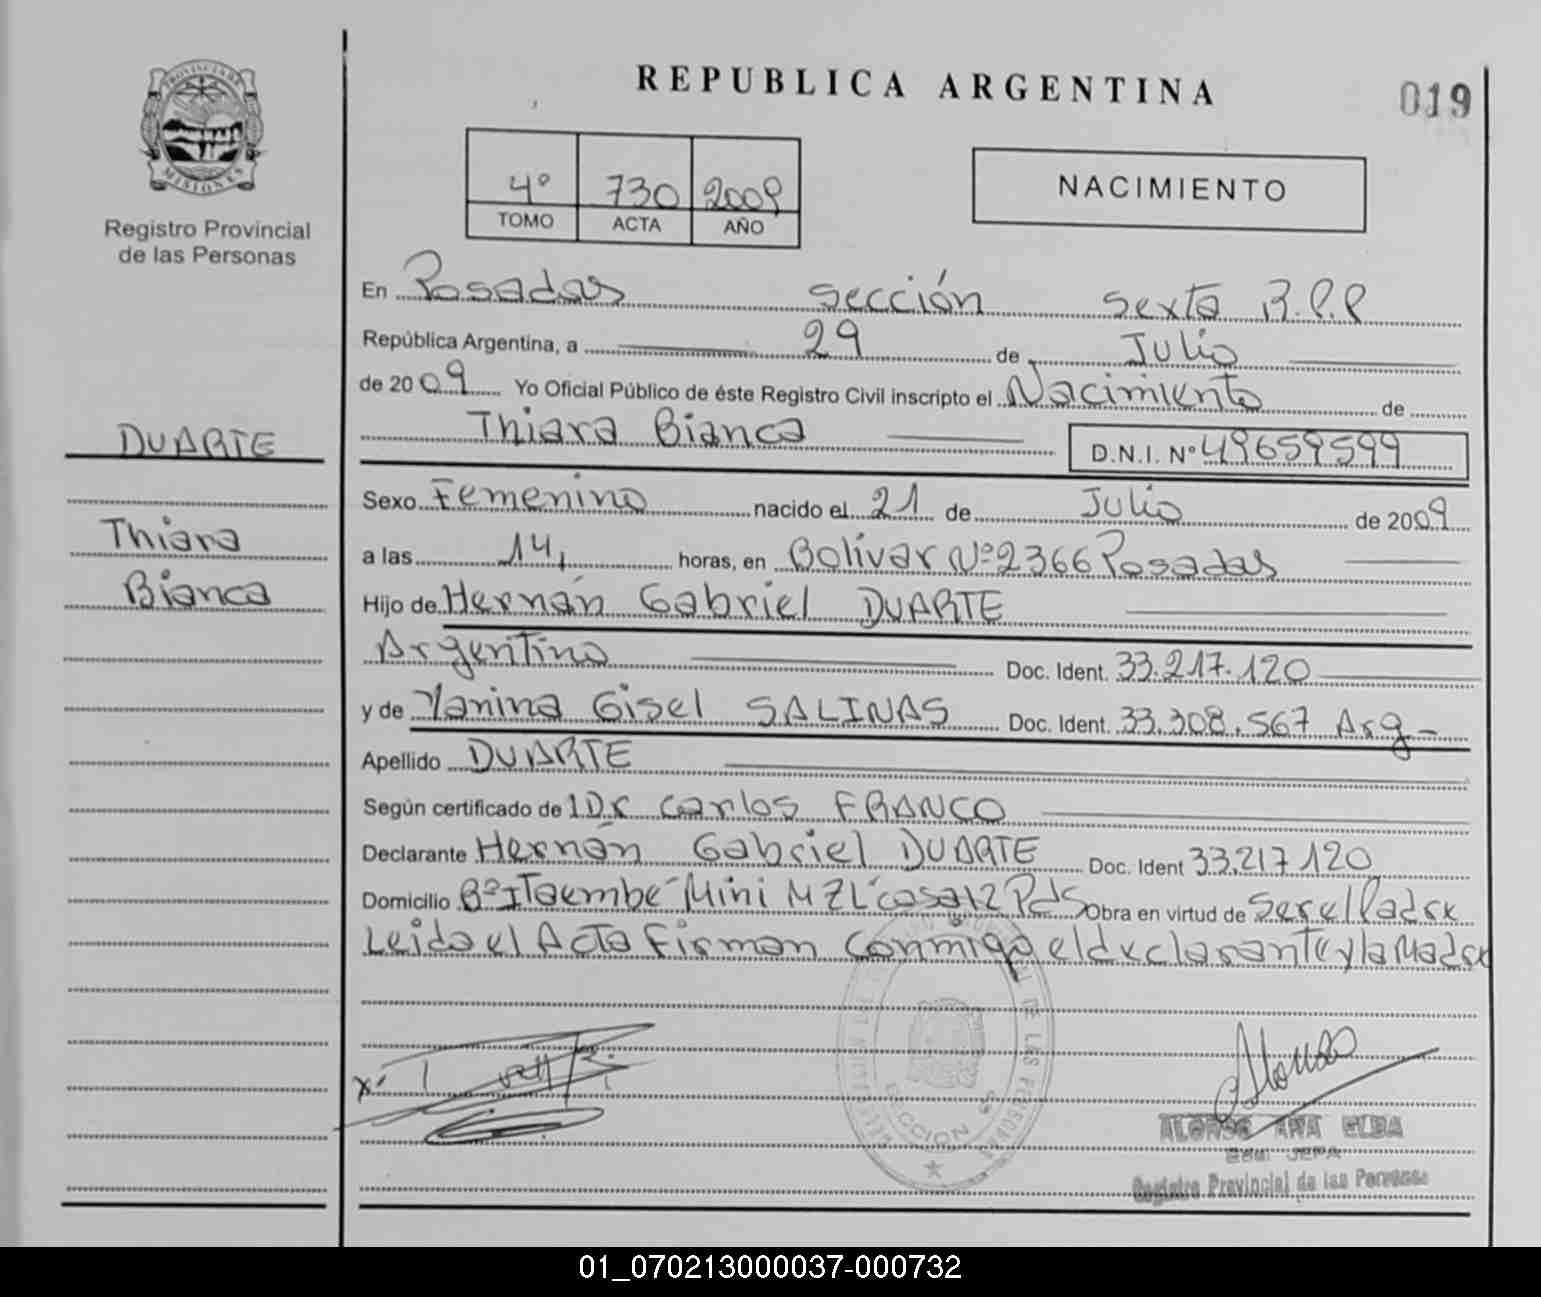 REPUBLICA ARGENTINA
019
PROVINCIA DE
MISIONES
Registro Provincial
de las Personas
4º 730 2009
TOMO ACTA AÑO
NACIMIENTO
En Posadas Sección Sexta R.P.P
República Argentina, a 29 de Julio
de 2009 Yo Oficial Público de éste Registro Civil inscripto el Nacimiento de
Thiara Bianca D.N.I. Nº 49659599
DUARTE
Thiara
Bianca
Sexo Femenino nacido el 21 de Julio de 2009
a las 14, horas, en Bolívar Nº 2366 Posadas
Hijo de Hernán Gabriel DUARTE
Argentino Doc. Ident. 33.217.120
y de Yanina Gisel SALINAS Doc. Ident. 33.308.567 Arg-
Apellido DUARTE
Según certificado de Dr Carlos FRANCO
Declarante Hernán Gabriel DUARTE Doc. Ident 33.217.120
Domicilio Bº Itaembé Mini MZ casa 12 Pds Obra en virtud de Ser el Padre
Leida el Acta Firman conmigo el declarante y la Madre
SECCION
ALONSO ANA ELBA
JEFA
Registro Provincial de las Personas
01_070213000037-000732